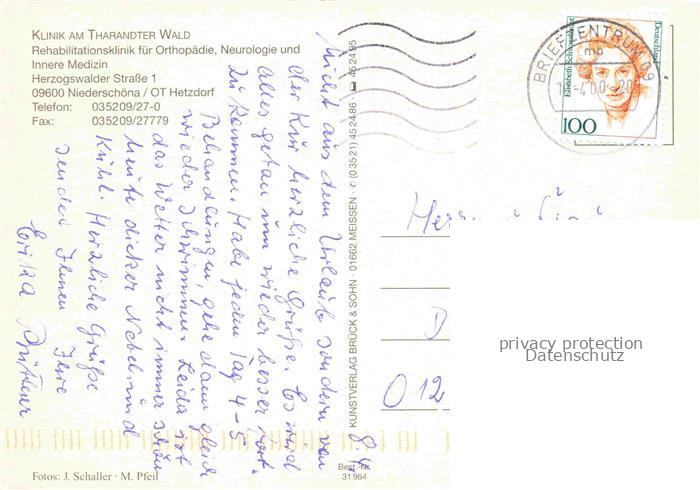 KLINIK AM THARANDTER WALD
Rehabilitationsklinik für Orthopädie, Neurologie und
Innere Medizin
Herzogswalder Straße 1
09600 Niederschöna / OT Hetzdorf
Telefon: 035209/27-0
Fax: 035209/27779
8.4.
Nicht aus dem Urlaub sondern von
der Kur herzliche Grüße. Es wird
alles getan um wieder besser
zu können. Habe jeden Tag 4-5
Behandlungen, gehe dann gleich
wieder schwimmen. Leider ist
das Wetter nicht immer schön
heute dicker Nebel und
kühl. Herzliche Grüße
sendet Ihnen Ihre
Erika
KUNSTVERLAG BRÜCK & SOHN · 01662 MEISSEN · ✆ (03521) 45 24 86 · 45 24 95
Fotos: J. Schaller · M. Pfeil
Best.-Nr.
31 964
BRIEFZENTRUM 09
mb
Deutschland
100
Herr
D
O 12
privacy protection
Datenschutz